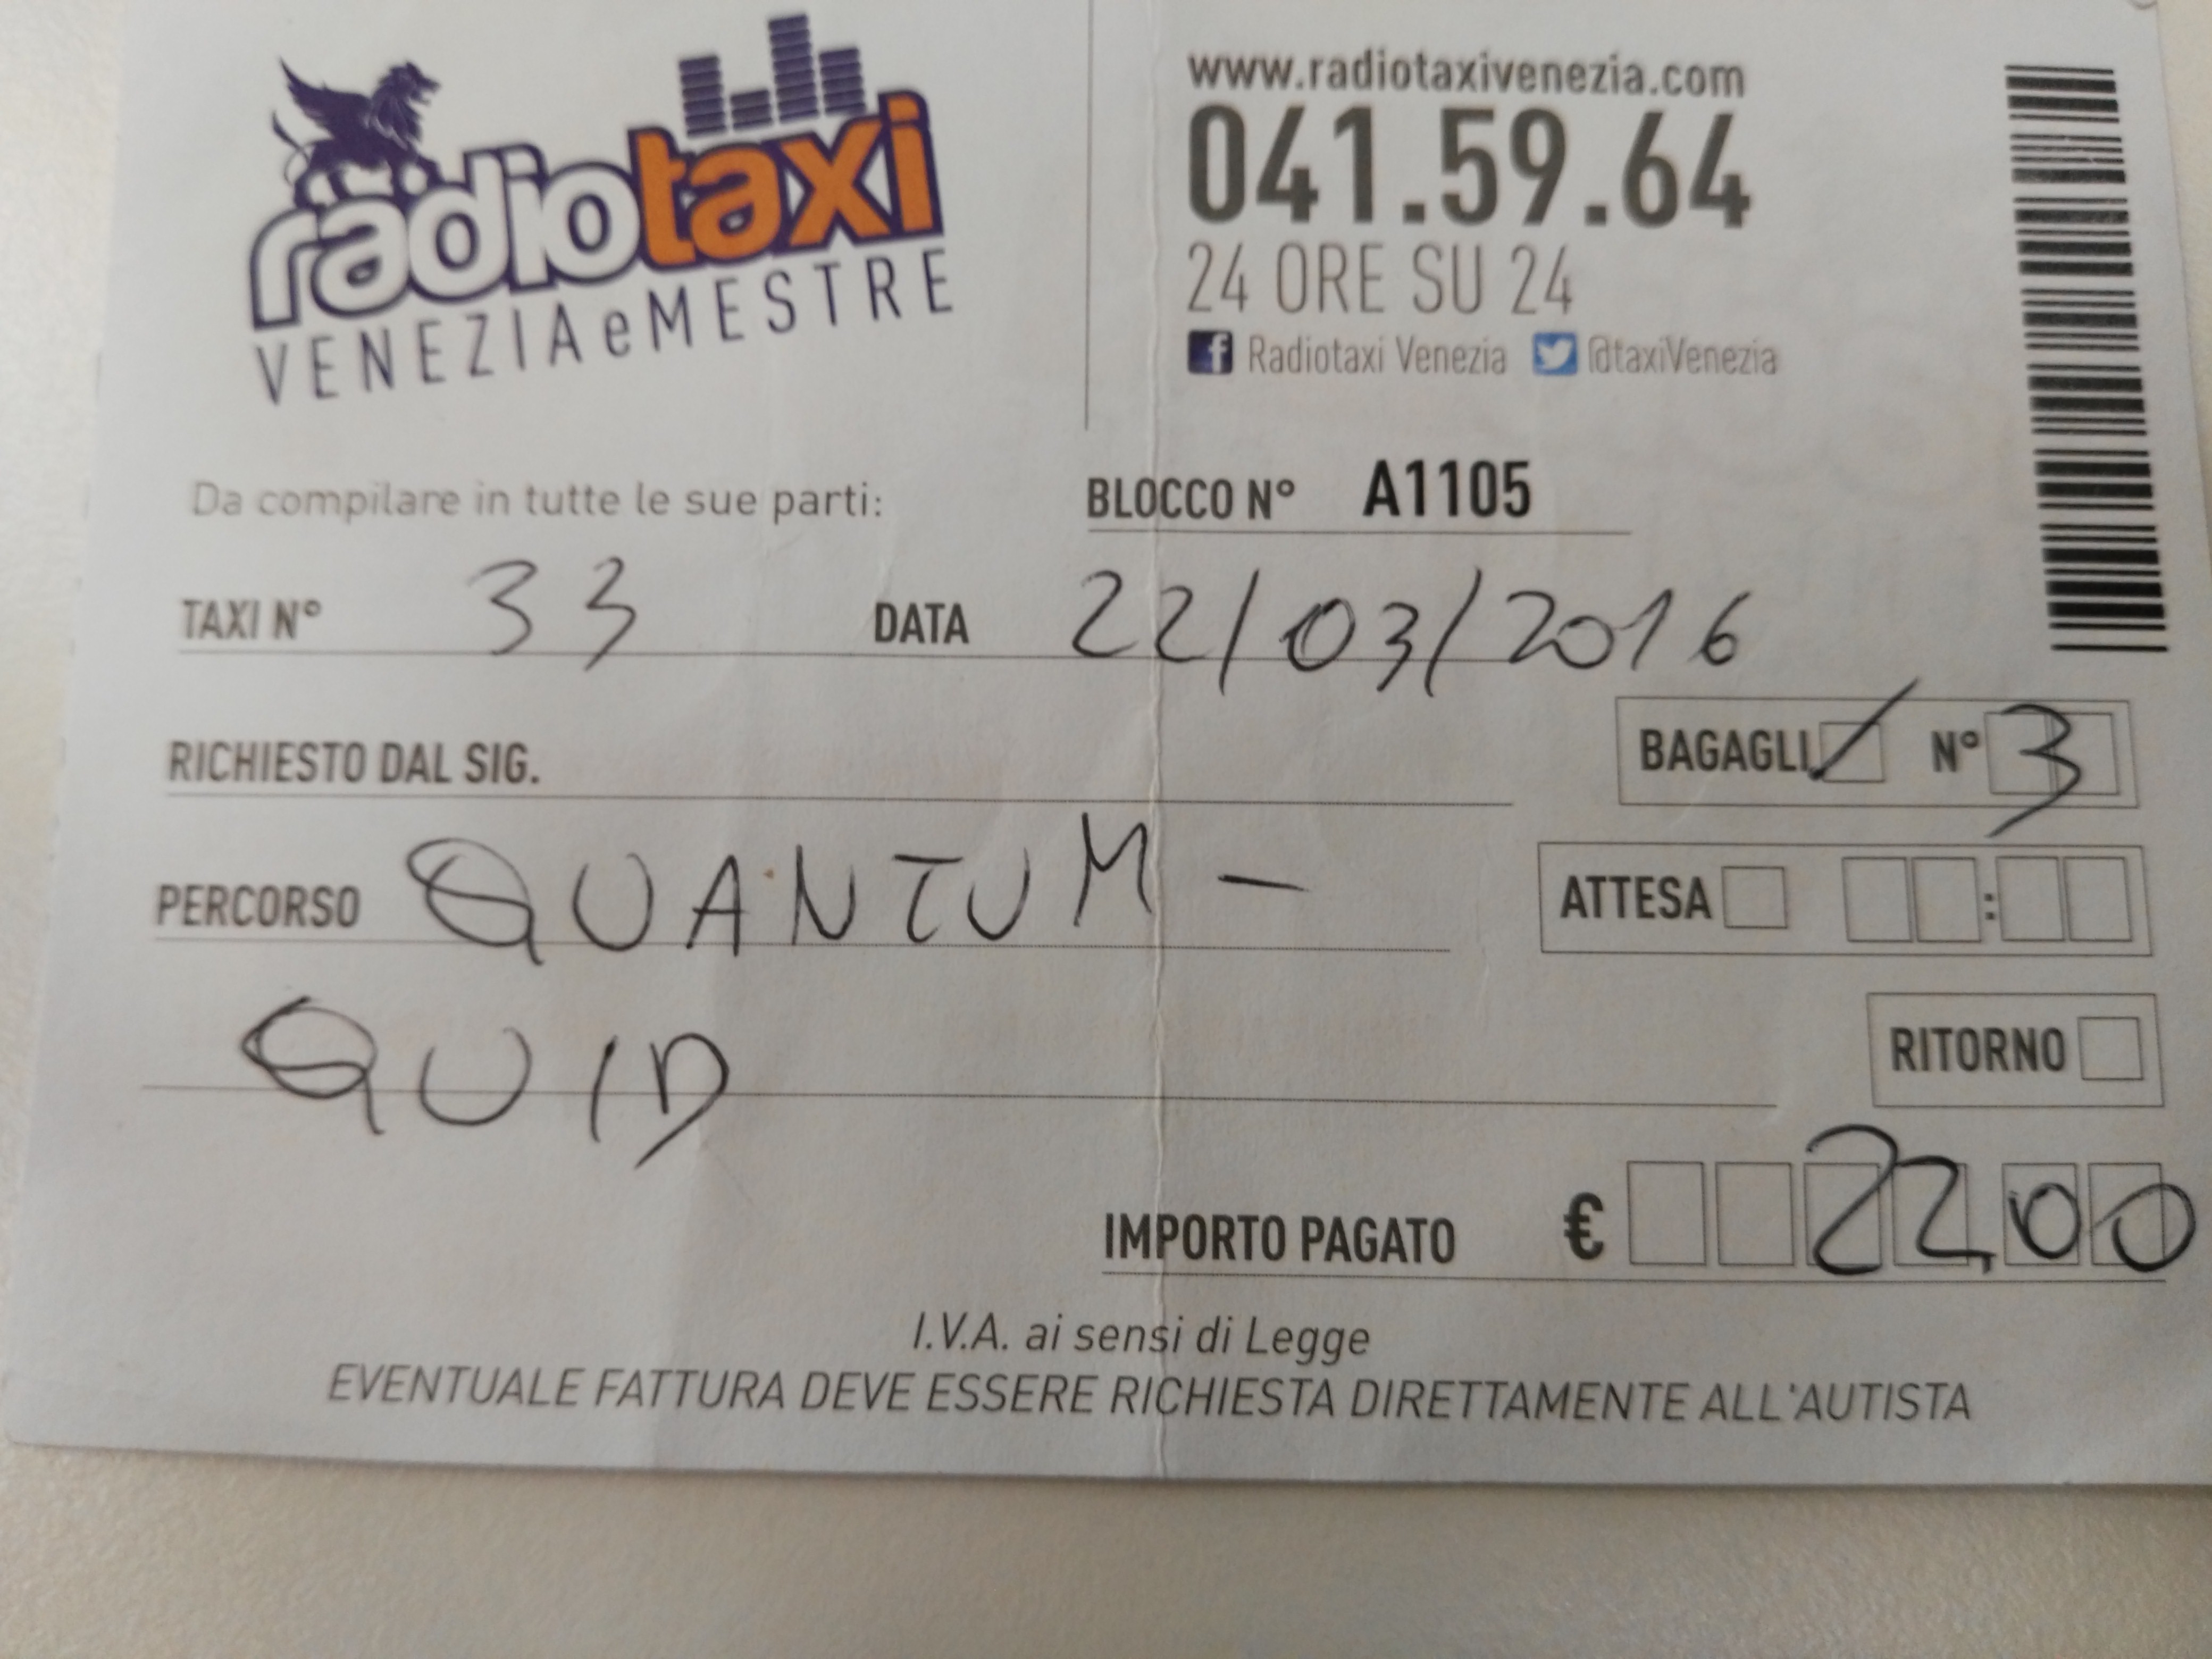 radiotaxi
VENEZIAeMESTRE
www.radiotaxivenezia.com
041.59.64
24 ORE SU 24
Radiotaxi Venezia @taxiVenezia
Da compilare in tutte le sue parti: BLOCCO N° A1105
TAXI N° 33 DATA 22/03/2016
RICHIESTO DAL SIG. BAGAGLI N° 3
PERCORSO QUANTUM - ATTESA :
QUID RITORNO
IMPORTO PAGATO € 22,00
I.V.A. ai sensi di Legge
EVENTUALE FATTURA DEVE ESSERE RICHIESTA DIRETTAMENTE ALL'AUTISTA